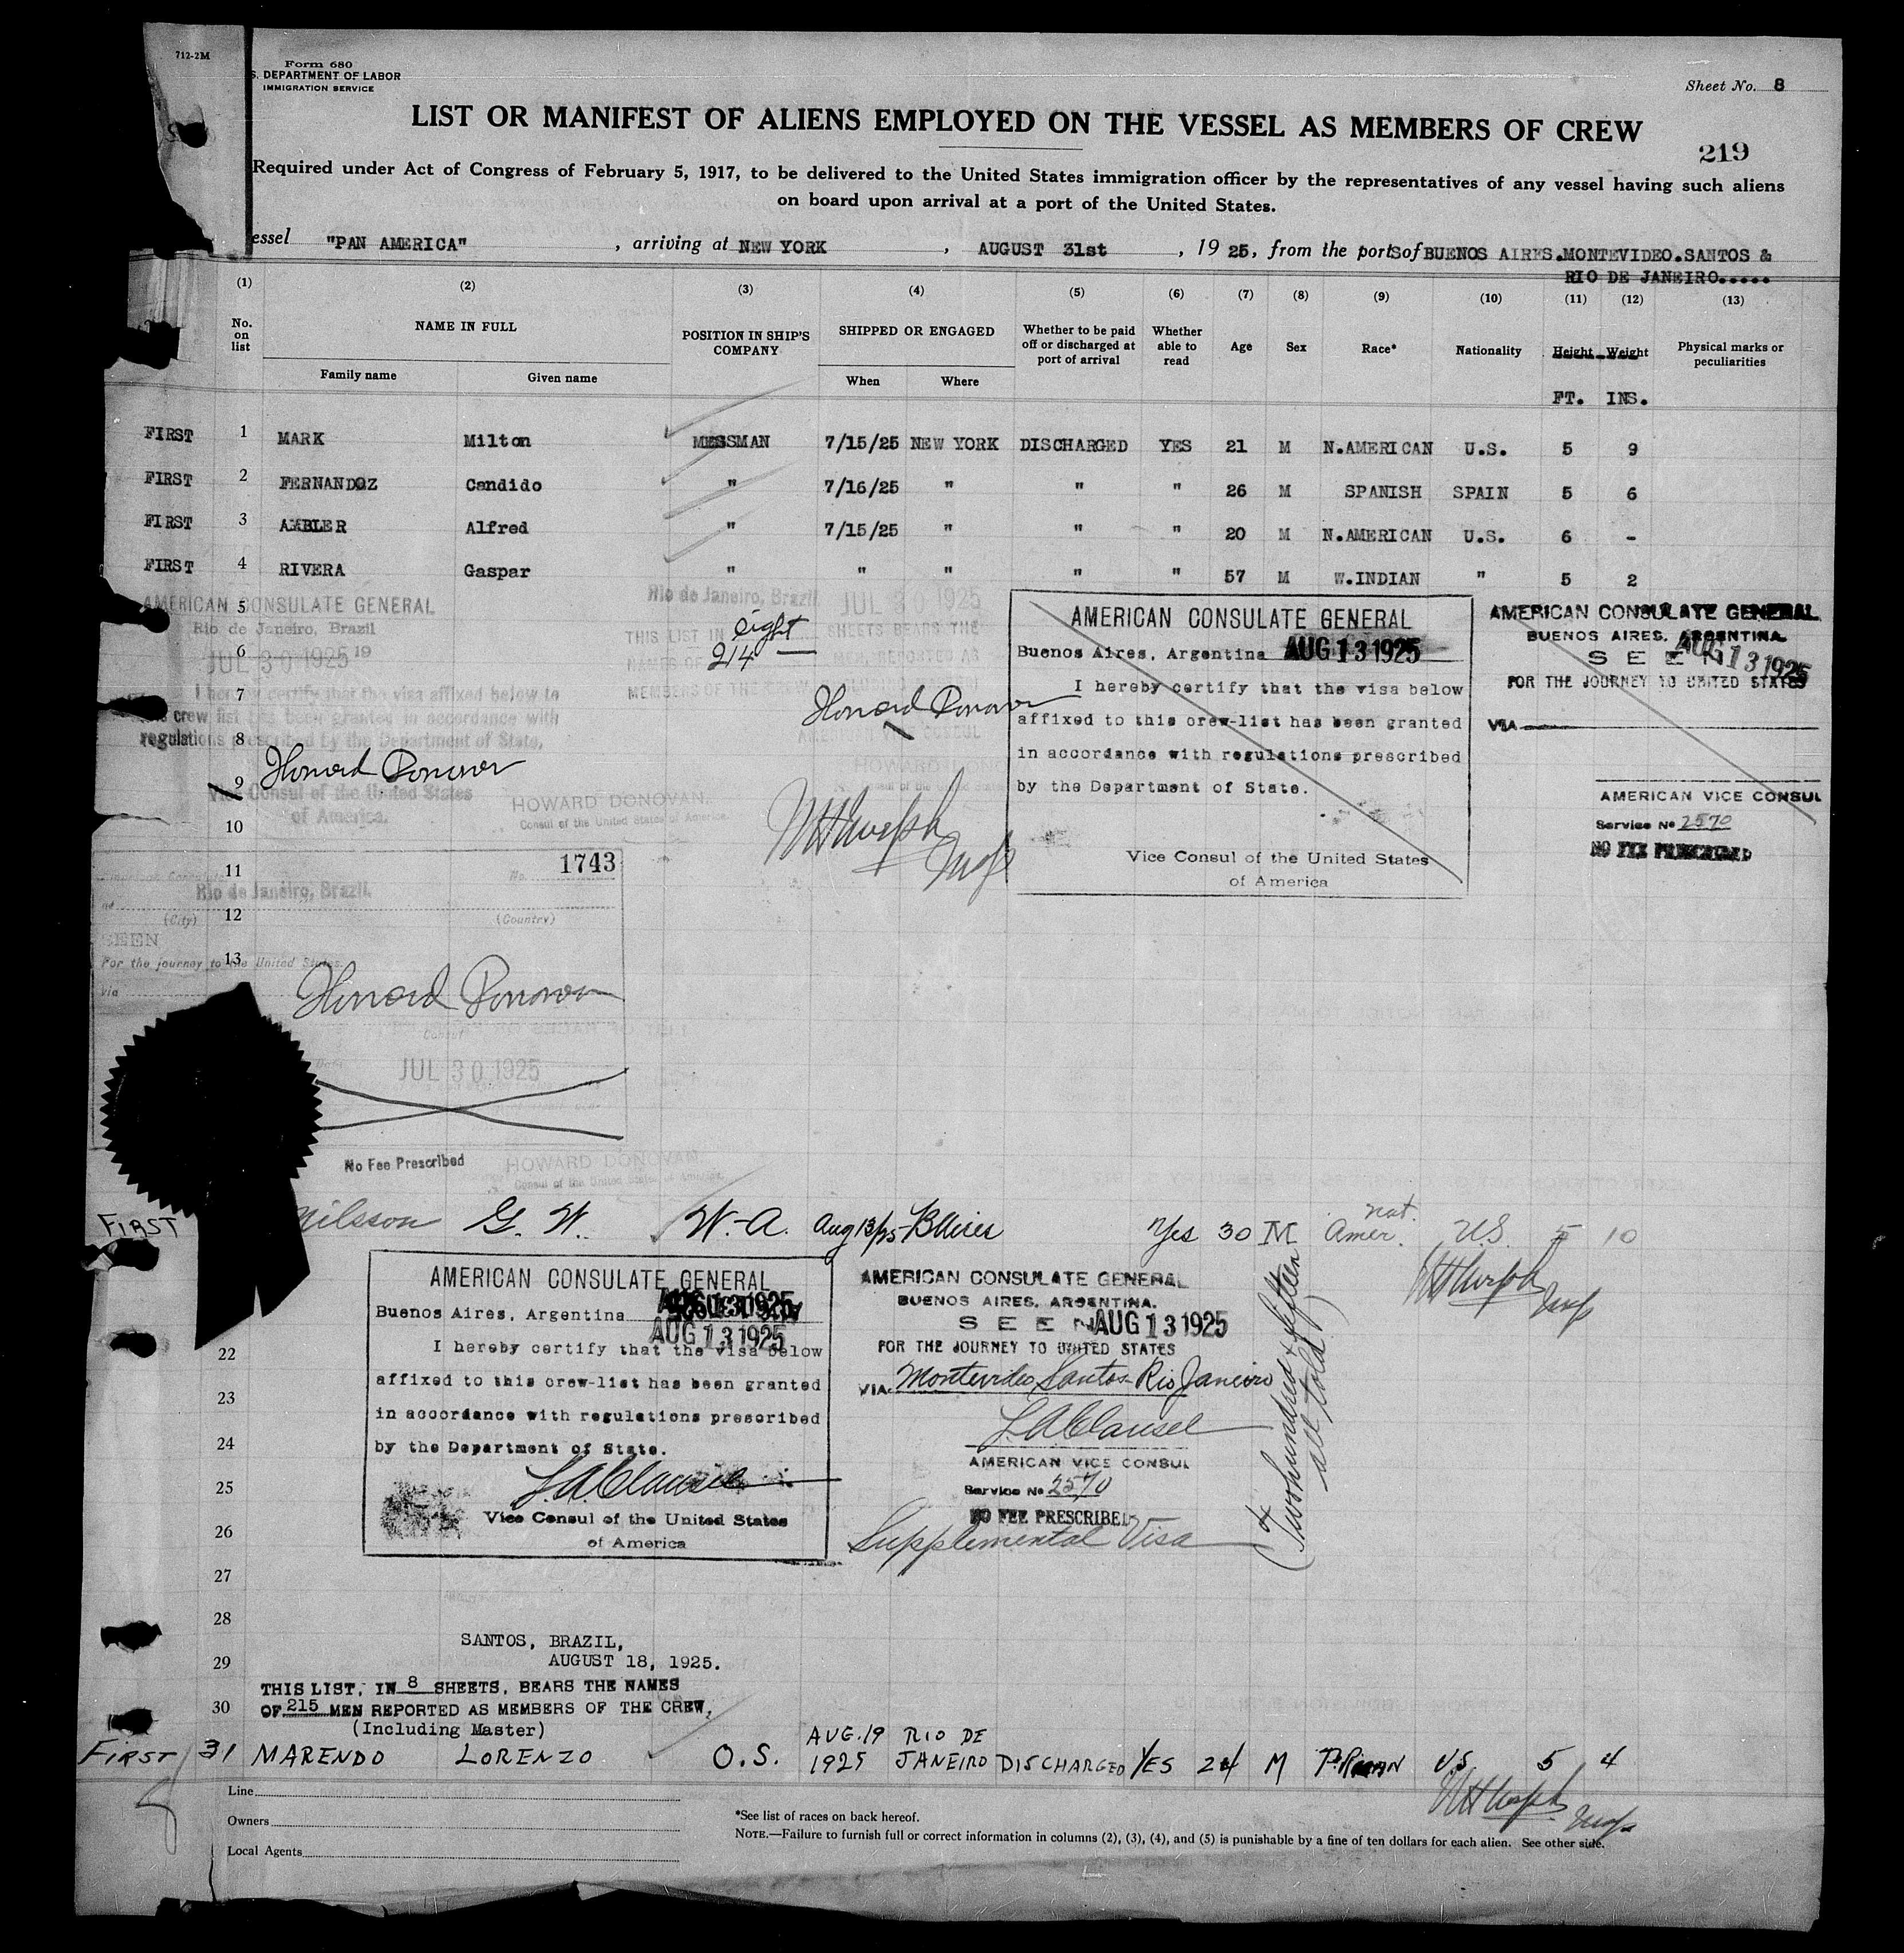 712-2M
Form 680
S. DEPARTMENT OF LABOR
IMMIGRATION SERVICE
Sheet No. 8
LIST OR MANIFEST OF ALIENS EMPLOYED ON THE VESSEL AS MEMBERS OF CREW
219
Required under Act of Congress of February 5, 1917, to be delivered to the United States immigration officer by the representatives of any vessel having such aliens
on board upon arrival at a port of the United States.
essel "PAN AMERICA", arriving at NEW YORK, AUGUST 31st, 1925, from the ports of BUENOS AIRES.MONTEVIDEO.SANTOS &
RIO DE JANEIRO.....
(1) (2) (3) (4) (5) (6) (7) (8) (9) (10) (11) (12) (13)
No. on list NAME IN FULL POSITION IN SHIP'S COMPANY SHIPPED OR ENGAGED Whether to be paid off or discharged at port of arrival Whether able to read Age Sex Race* Nationality Height Weight Physical marks or peculiarities
Family name Given name When Where
FT. INS.
FIRST 1 MARK Milton MESSMAN 7/15/25 NEW YORK DISCHARGED YES 21 M N.AMERICAN U.S. 5 9
FIRST 2 FERNANDOZ Candido " 7/16/25 " " " 26 M SPANISH SPAIN 5 6
FIRST 3 AMBLER Alfred " 7/15/25 " " " 20 M N.AMERICAN U.S. 6 -
FIRST 4 RIVERA Gaspar " " " " " 57 M W.INDIAN " 5 2
5
6
7
8
9
10
11
12
13
AMERICAN CONSULATE GENERAL
Rio de Janeiro, Brazil
JUL 30 1925 19
I hereby certify that the visa affixed below to
this crew list has been granted in accordance with
regulations prescribed by the Department of State,
Howard Donovan
Vice Consul of the United States
of America.
HOWARD DONOVAN.
Consul of the United States of America.
Rio de Janeiro, Brazil JUL 30 1925
THIS LIST IN eight SHEETS BEARS THE
NAMES OF 214 MEN, REPORTED AS
MEMBERS OF THE CREW
Howard Donovan
AMERICAN CONSULATE GENERAL
Buenos Aires, Argentina AUG 13 1925
I hereby certify that the visa below
affixed to this crew-list has been granted
in accordance with regulations prescribed
by the Department of State.
Vice Consul of the United States
of America
AMERICAN CONSULATE GENERAL
BUENOS AIRES, ARGENTINA.
SEEN AUG 13 1925
FOR THE JOURNEY TO UNITED STATES
VIA
AMERICAN VICE CONSUL
Service No 2570
NO FEE PRESCRIBED
No. 1743
Rio de Janeiro, Brazil.
(City) (Country)
SEEN
For the journey to the United States.
via
Howard Donovan
Consul
JUL 30 1925
No Fee Prescribed
HOWARD DONOVAN
Consul of the United States of America.
FIRST Nilsson G. W. W.-A. Aug 13/25 BAires Yes 30 M nat. Amer. U.S. 5 10
AMERICAN CONSULATE GENERAL
Buenos Aires, Argentina AUG 13 1925
AUG 13 1925
I hereby certify that the visa below
affixed to this crew-list has been granted
in accordance with regulations prescribed
by the Department of State.
Vice Consul of the United States
of America
AMERICAN CONSULATE GENERAL
BUENOS AIRES, ARGENTINA.
SEEN AUG 13 1925
FOR THE JOURNEY TO UNITED STATES
VIA Montevideo Santos-Rio Janeiro
AMERICAN VICE CONSUL
Service No 2570
NO FEE PRESCRIBED
Supplemental Visa
(Two hundred & fifteen
all told)
22
23
24
25
26
27
28
29
30
SANTOS, BRAZIL,
AUGUST 18, 1925.
THIS LIST, IN 8 SHEETS, BEARS THE NAMES
OF 215 MEN REPORTED AS MEMBERS OF THE CREW,
(Including Master)
FIRST 31 MARENDO LORENZO O.S. AUG.19 1925 RIO DE JANEIRO DISCHARGED YES 24 M P.RICAN US 5 4
Line
Owners
Local Agents
*See list of races on back hereof.
NOTE.—Failure to furnish full or correct information in columns (2), (3), (4), and (5) is punishable by a fine of ten dollars for each alien. See other side.